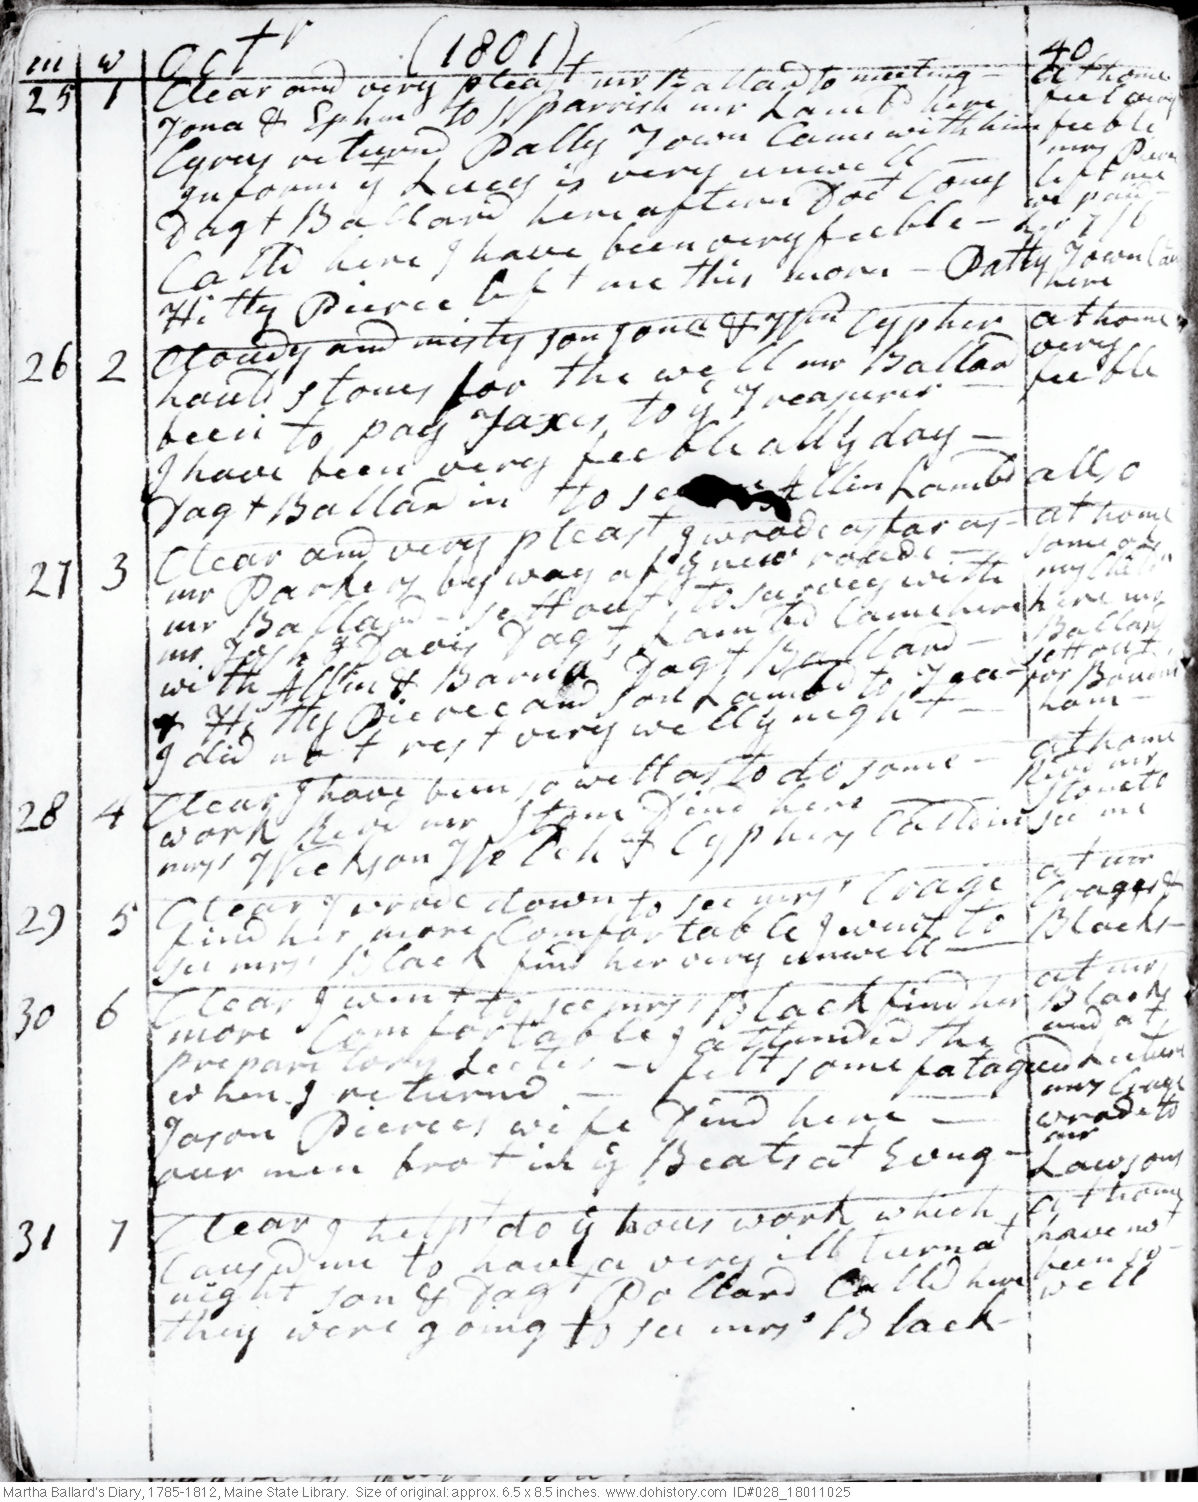 m w Oct r (1801) 40
25 1 Clear and very pleast mr Ballard to meeting - at home
Jona & Ephm to parrish mr Lambd here feel very
Cyrus returnd Pally Town Came with him feeble
Informs yt Lucy is very unwell mrs Pierce
Dagt Ballard here afterns Doct Cony left me
Calld here I have been very feeble - we paid her 7/6
Hitty Pierce left me this morn - Patty Town Came here
26 2 Cloudy and misty son Jona & Cypher at home
hauld stones for the well mr Ballard very
been to pay Taxes to ye Treasurer - feeble
I have been very feeble all ye day -
Dagt Ballard in to see Allin Lambd allso
27 3 Clear and very pleast I wrode as far as - at home
mr Parkers by way of ye new roade - some of
mr Ballard sett out to survey with my
mr Josh Davis Dagt Lambd Came here here mr Ballard
with Allin & Barnd Dagt Ballard - sett out
& Hitty Pierce and son Lambd to Tea - for Bowdoin
I did not rest very well ye night - ham -
28 4 Clear I have been so well as to do some - at home
work Revd mr Stone Dind here Revd mr Stone &c
mrs Welch & Cyphers Calld in see me
29 5 Clear I wrode down to see mrs Crage at mr Crages &
find her more Comfortable I went to Blacks -
see mrs Black find her very unwell -
30 6 Clear I went to see mrs Black find her at mrs Blacks
more Comfortable I attended the and at
preparitory Lecter - felt some fatagued Lecture
when I returnd - mrs Crage
Jason Pierces wife Dind here - wrode to
our men brot in ye Beats at Evng - mr Lawsons
31 7 Clear I helpt do ye hous work which at home
Causd me to have a very ill turn at have not
night son & Dagt Pollard Calld here been so
they were going to see mrs Black - well
Martha Ballard's Diary, 1785-1812, Maine State Library. Size of original: approx. 6.5 x 8.5 inches. www.dohistory.com ID#028_18011025